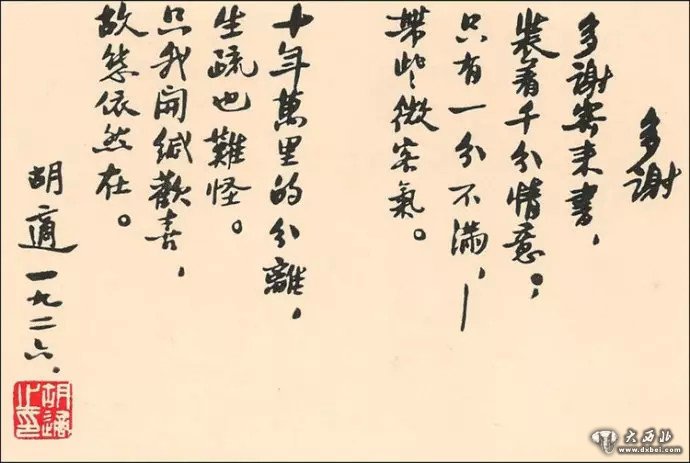 多謝
多謝寄來書,
裝着千分情意;
只有一分不滿,—
帶些微客氣。
十年萬里的分離,
生疏也難怪。
只我開緘歡喜,
故態依然在。
胡適 一九二六.
胡適之璽
大西北
www.dxbei.com